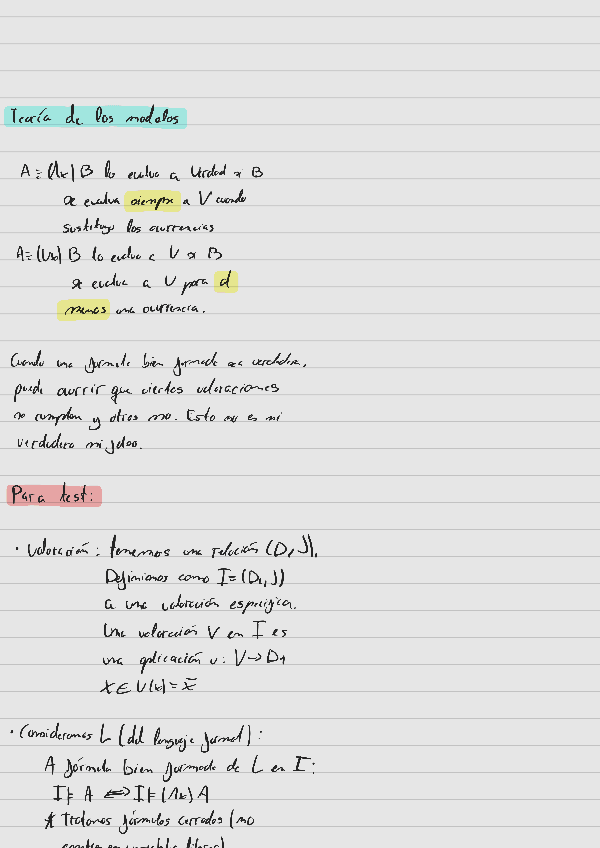 Teoría de los modelos
A ≡ (Λx) B lo evalua a Verdad si B
se evalua siempre a V cuando
sustituyo las ocurrencias
A ≡ (Vx) B lo evalua a V si B
se evalua a V para al
menos una ocurrencia.
Cuando una formula bien formada sea verdadera,
puede ocurrir que ciertas valoraciones
se cumplan y otras no. Esto no es ni
verdadero ni falso.
Para test:
· Valoración: tenemos una relación (D, J),
Definimos como I = (D, J)
a una valoración específica.
Una valoración V en I es
una aplicación v: V → D
x ∈ V(x) = x̄
· Consideramos L (del lenguaje formal):
A fórmula bien formada de L en I:
I ⊧ A ⟺ I ⊧ (Λx) A
* Tratamos fórmulas cerradas (no